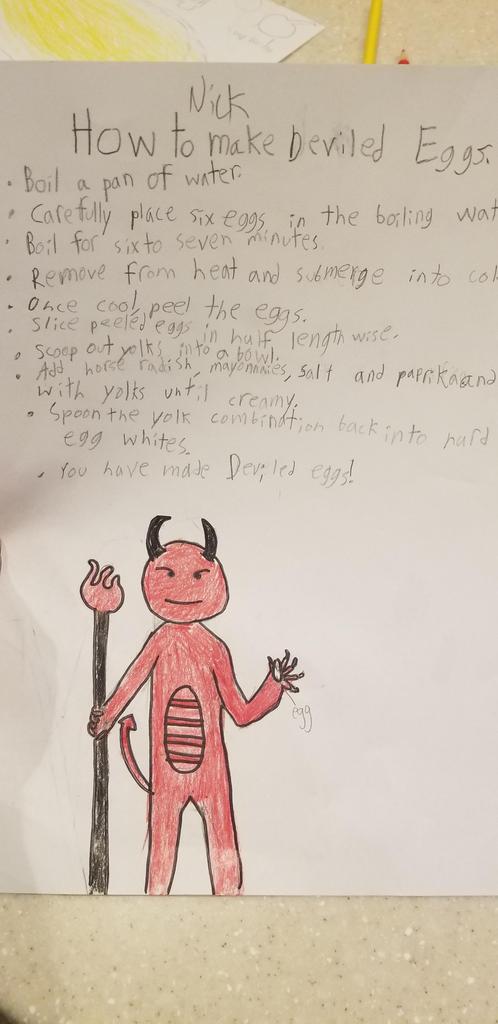 Nick
How to make Deviled Eggs.
• Boil a pan of water.
• Carefully place six eggs in the boiling wat
• Boil for six to seven minutes.
• Remove from heat and submerge into col
• Once cool, peel the eggs.
• Slice peeled eggs in half lengthwise.
• Scoop out yolks into a bowl.
• Add horse radish, mayonnies, salt and paprika and
with yolks until creamy.
• Spoon the yolk combination back into hard
egg whites.
• You have made Deviled eggs!
egg